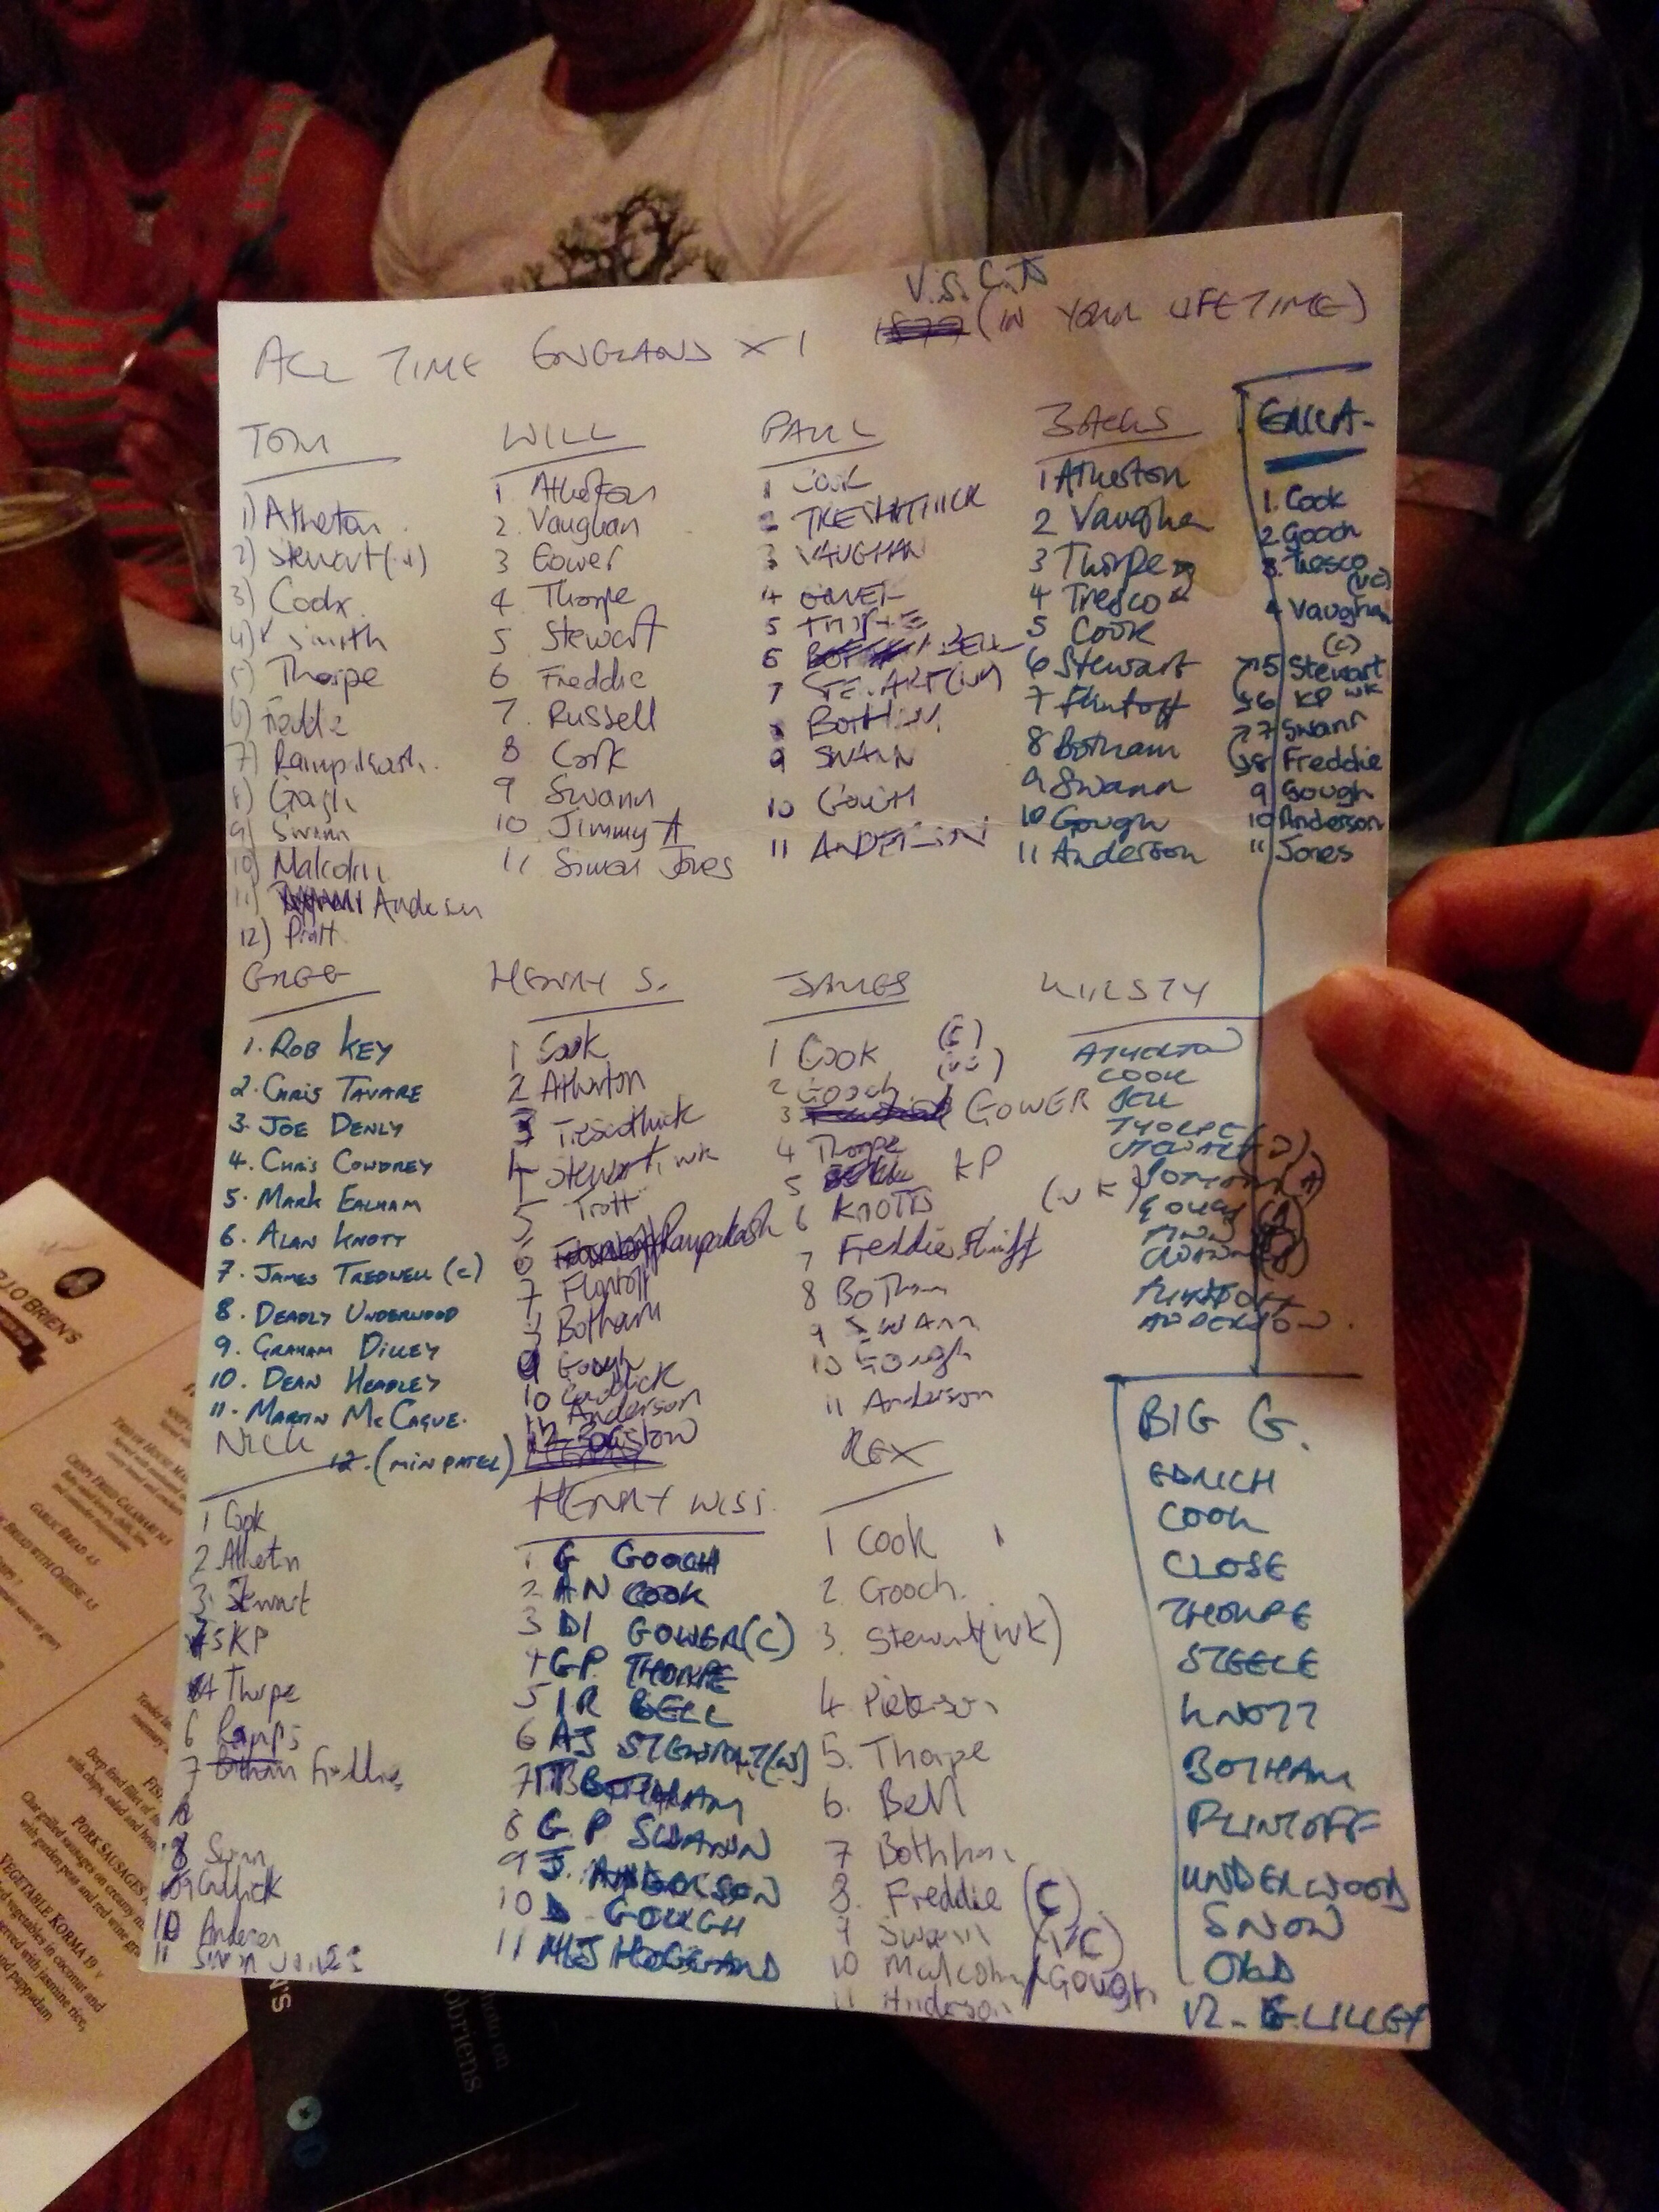 V.S.C.
ALL TIME ENGLAND XI (IN YOUR LIFETIME)
TOM
1) Atherton
2) Stewart
3) Cook
4) Smith
5) Thorpe
6) Freddie
7) Ramprikash.
8) Gough
9) Swann
10) Malcolm
11) Anderson
12) Pratt
WILL
1 Atherton
2. Vaughan
3 Gower
4 Thorpe
5 Stewart
6 Freddie
7. Russell
8 Cork
9 Swann
10 Jimmy A
11 Simon Jones
PAUL
1 COOK
2 TRESHTHICK
3 VAUGHAN
4 GOWER
5 THORPE
6 BELL
7 STEWART (WK)
8 BOTHAM
9 SWANN
10 GOUGH
11 ANDERSON
1 Atherton
2 Vaughan
3 Thorpe
4 Tresco
5 Cook
6 Stewart
7 Flintoff
8 Botham
9 Swann
10 Gough
11 Anderson
1. Cook
2. Gooch
3. Tresco (VC)
4 Vaughan (C)
5 Stewart
6 KP WK
7 Swann
8 Freddie
9 Gough
10 Anderson
11 Jones
GREG
1. ROB KEY
2. CHRIS TAVARE
3. JOE DENLY
4. CHRIS COWDREY
5. MARK EALHAM
6. ALAN KNOTT
7. JAMES TREDWELL (C)
8. DEADLY UNDERWOOD
9. GRAHAM DILLEY
10. DEAN HEADLEY
11. MARTIN McCAGUE.
12. (MIN PATEL)
HENRY S.
1 Cook
2 Atherton
3 Trescothick
4 Stewart, WK
5 Trott
6 Rampakash
7 Flintoff
8 Botham
9 Gough
10 Caddick
Anderson
JAMES
1 Cook (C)
2 Gooch (VC)
3 GOWER
4 Thorpe
5 KP
6 KNOTTS (WK)
7 Freddie Flintoff
8 Botham
9 Swann
10 Gough
11 Anderson
KIRSTY
ATHERTON
COOK
BELL
THORPE
STEWART
BOTHAM
GOUGH
SWANN
FLINTOFF
ANDERSON.
NICK
1 Cook
2 Atherton
3 Stewart
5 KP
4 Thorpe
6 Ramps
7 Botham Freddie
8 Swann
9 Caddick
10 Anderson
11 Simon Jones
HENRY WISI.
1 G GOOCH
2 AN COOK
3 DI GOWER (C)
4 GP THORPE
5 IR BELL
6 AJ STEWART (W)
7 IT BOTHAM
8 G P SWANN
9 J. ANDERSON
10 D GOUGH
11 MJ HOGGARD
REX
1 Cook
2. Gooch.
3. Stewart (WK)
4 Pieterson
5. Thorpe
6. Bell
7 Bothham
8. Freddie (C)
9 Swann (VC)
10 Malcolm / Gough
11 Anderson
BIG G.
EDRICH
COOK
CLOSE
THORPE
STEELE
KNOTT
BOTHAM
FLINTOFF
UNDERWOOD
SNOW
OLD
12 - LILLEY
J O'BRIEN'S
CRISPY FRIED CALAMARI
GARLIC BREAD 4.5
BREAD WITH CHEESE 5.5
PORK SAUSAGES
Our grilled sausages on creamy
with garden peas and red wine
VEGETABLE KORMA 19 V
vegetables in coconut and
served with jasmine rice,
and pappadam
obriens